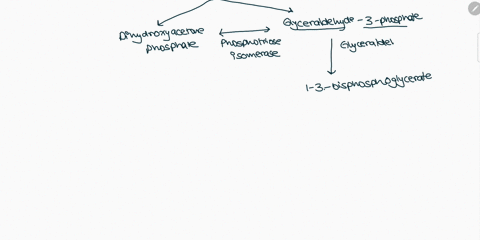 Glyceraldehyde - 3-phosphate
Dihydroxyacetone
phosphate
Phosphotriose
isomerase
Glyceraldel
1-3-Bisphosphoglycerate